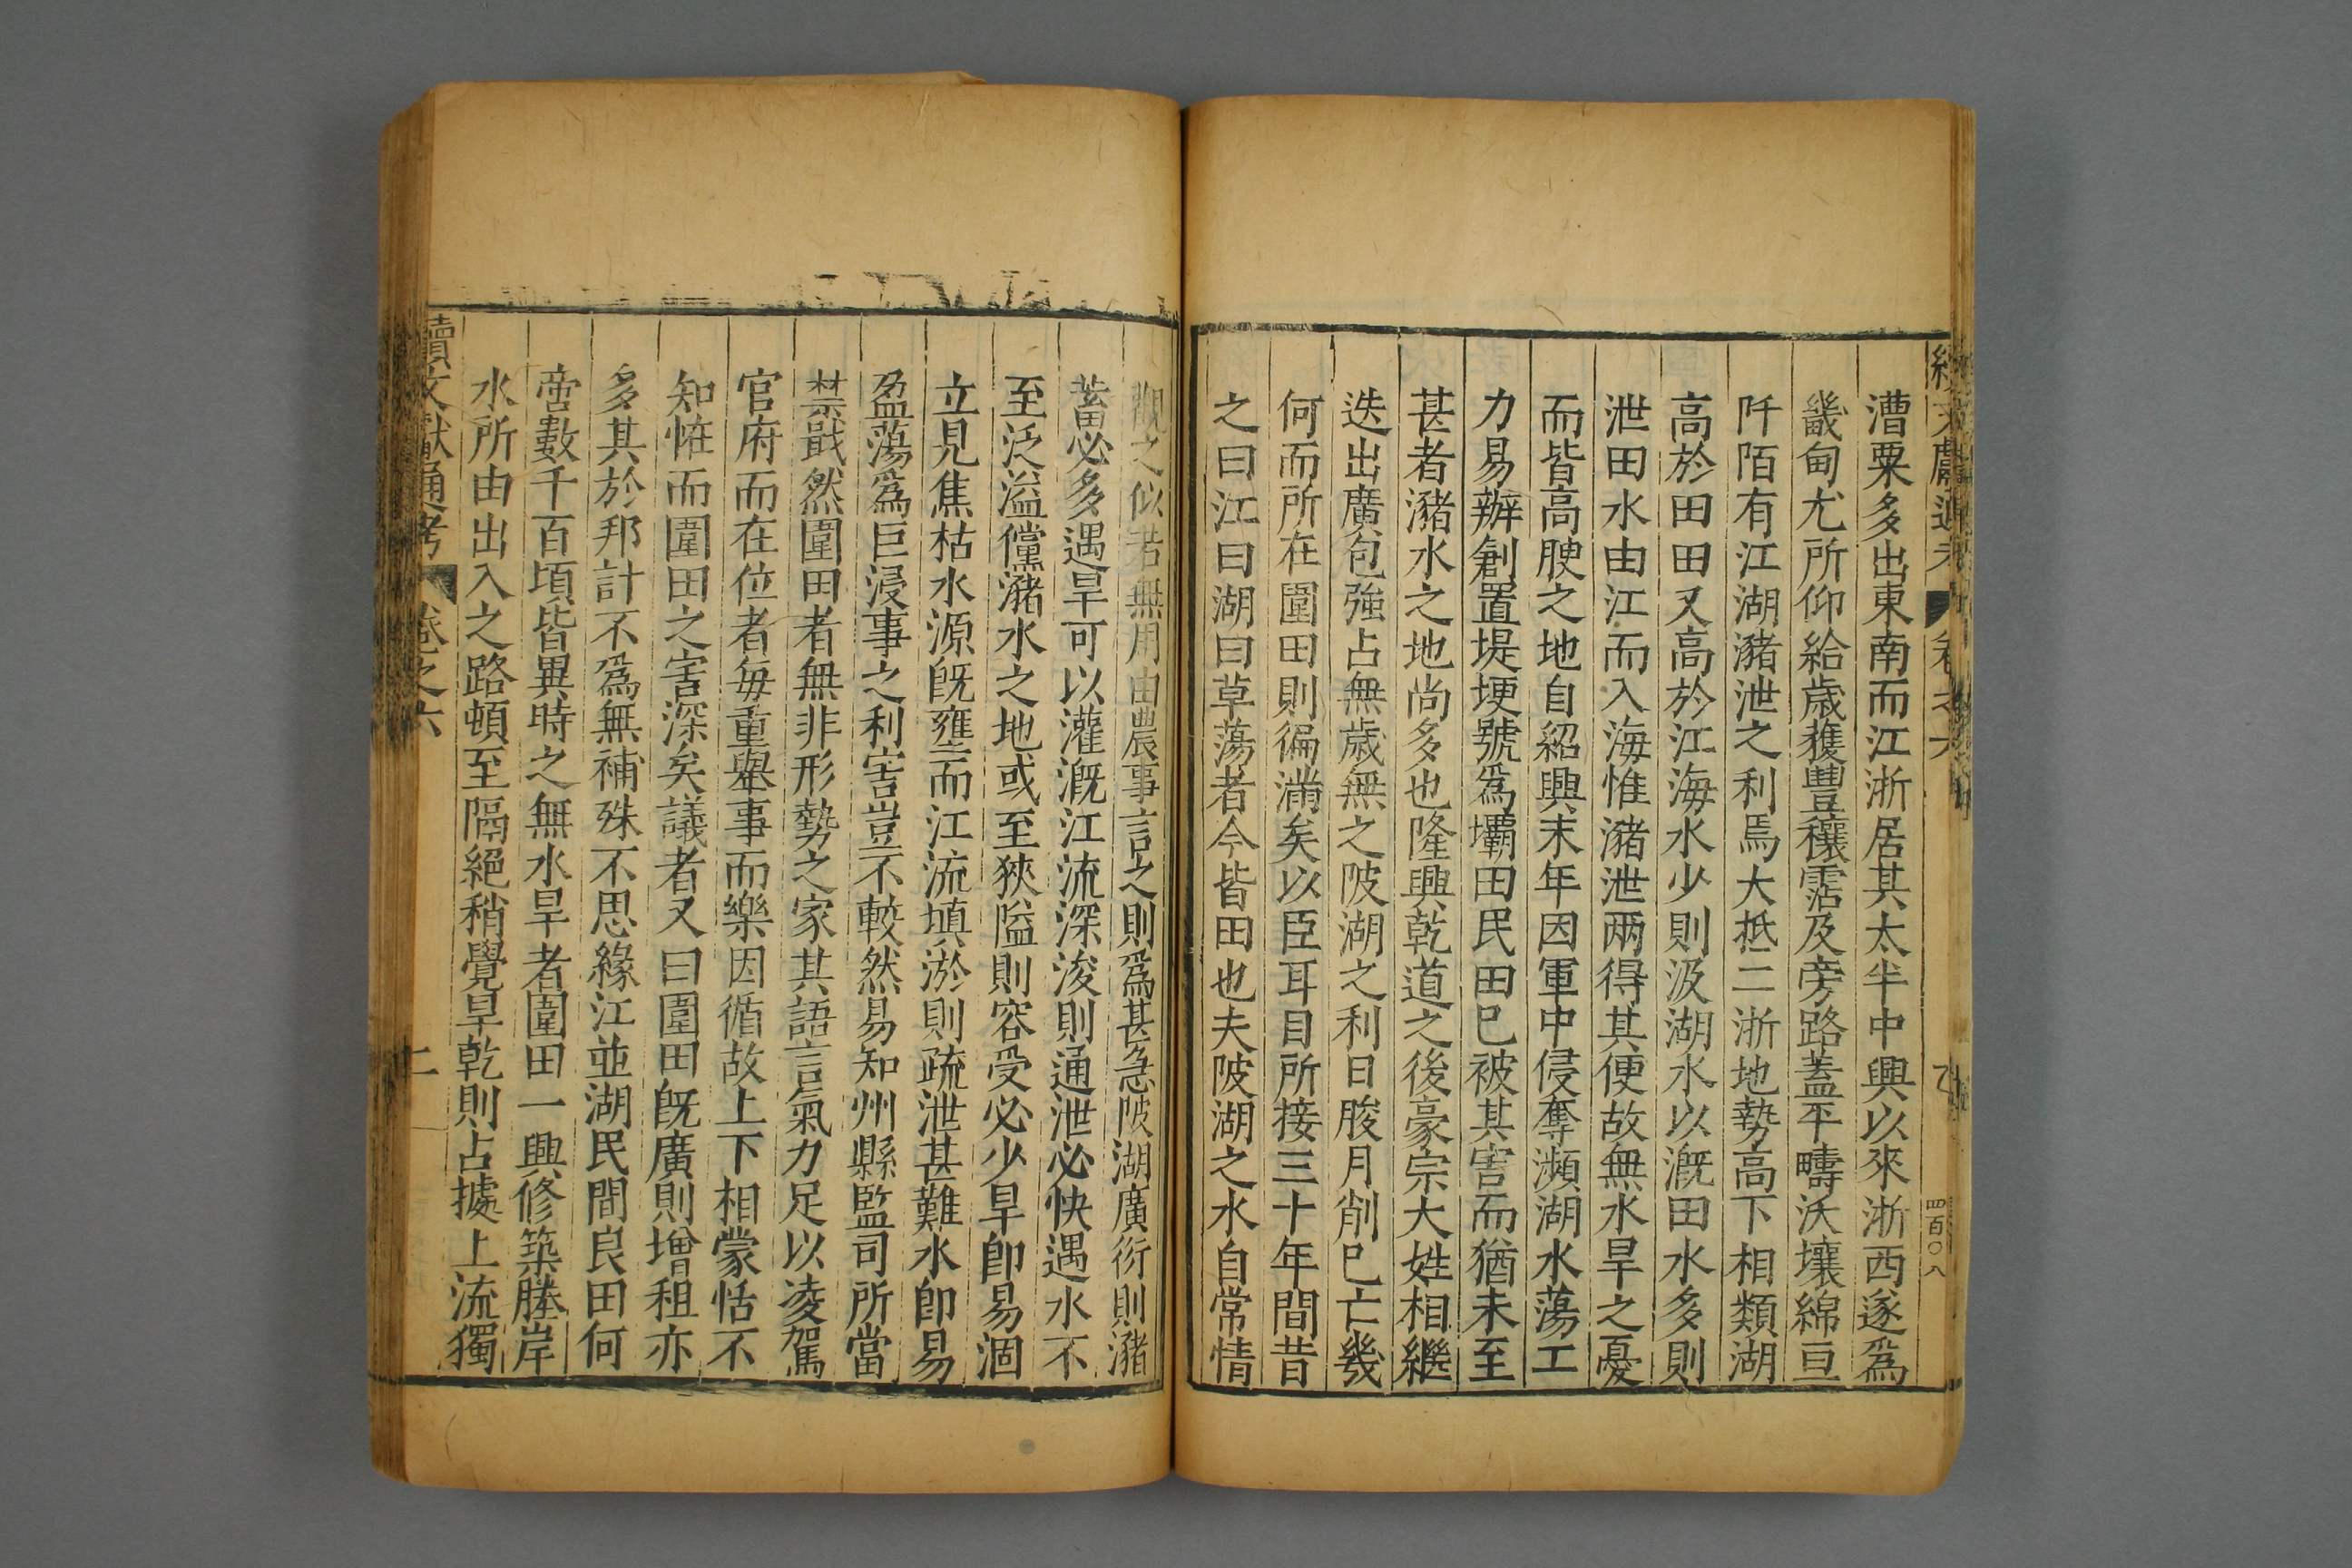 續文獻通考 卷之六 四百〇八
漕粟多出東南而江浙居其太半中興以來浙西遂爲
畿甸尤所仰給歲獲豐穰霑及旁路蓋平疇沃壤綿亘
阡陌有江湖瀦泄之利焉大抵二浙地勢高下相類湖
高於田田又高於江海水少則汲湖水以漑田水多則
泄田水由江而入海惟瀦泄兩得其便故無水旱之憂
而皆高腴之地自紹興末年因軍中侵奪瀕湖水蕩工
力易辦創置堤埂號爲壩田民田巳被其害而猶未至
甚者瀦水之地尚多也隆興乾道之後豪宗大姓相繼
迭出廣包強占無歲無之陂湖之利日朘月削巳亡幾
何而所在圍田則徧滿矣以臣耳目所接三十年間昔
之曰江曰湖曰草蕩者今皆田也夫陂湖之水自常情
觀之似若無用由農事言之則爲甚急陂湖廣衍則瀦
蓄必多遇旱可以灌漑江流深浚則通泄必快遇水不
至泛溢儻瀦水之地或至狹隘則容受必少旱卽易涸
立見焦枯水源旣壅而江流塡淤則疏泄甚難水卽易
盈蕩爲巨浸事之利害豈不較然易知州縣監司所當
禁戢然圍田者無非形勢之家其語言氣力足以凌駕
官府而在位者每重舉事而樂因循故上下相蒙恬不
知恠而圍田之害深矣議者又曰圍田旣廣則增租亦
多其於邦計不爲無補殊不思緣江並湖民間良田何
啻數千百頃皆異時之無水旱者圍田一興修築塍岸
水所由出入之路頓至隔絕稍覺旱乾則占據上流獨
續文獻通考 卷之六 二